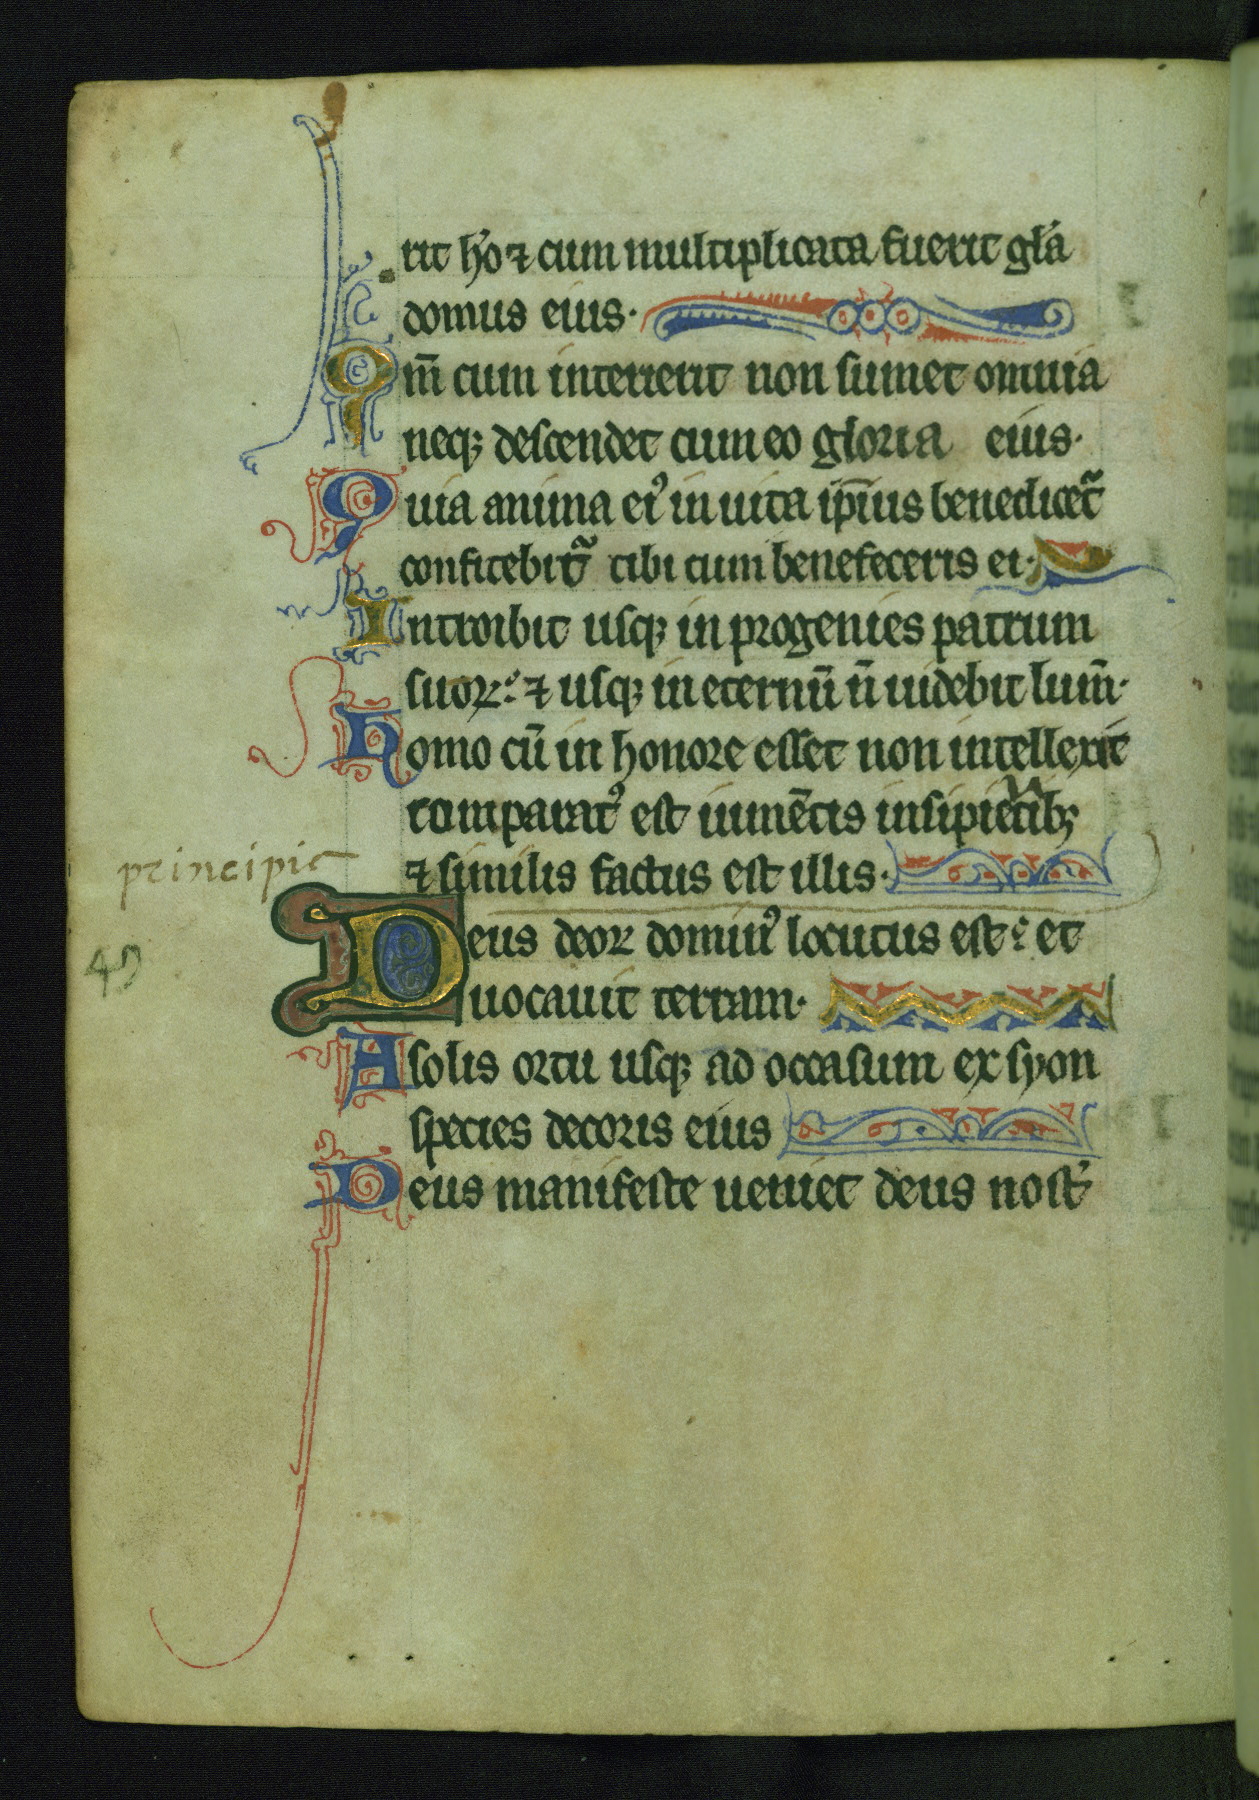 rit ho ⁊ cum multiplicata fuerit gła
domus eius·
Qm̄ cum interierit non sumet omnia
neqꝫ descendet cum eo gloria eius·
Quia anima eiꝰ in uita ip̄ius benedicet᷑
confitebit᷑ tibi cum benefeceris ei·
Introibit usqꝫ in progenies patrum
suoꝝ: ⁊ usqꝫ in eternū n̄ uidebit lum̄·
Homo cū in honore esset non intellexit
comparatꝰ est iumētis insipiētibꝫ
⁊ similis factus est illis·
principit
Deus deoꝝ dominꝰ locutus est: et
49
uocauit terram·
A solis ortu usqꝫ ad occasum ex syon
species decoris eius
Deus manifeste ueniet deus nost̛